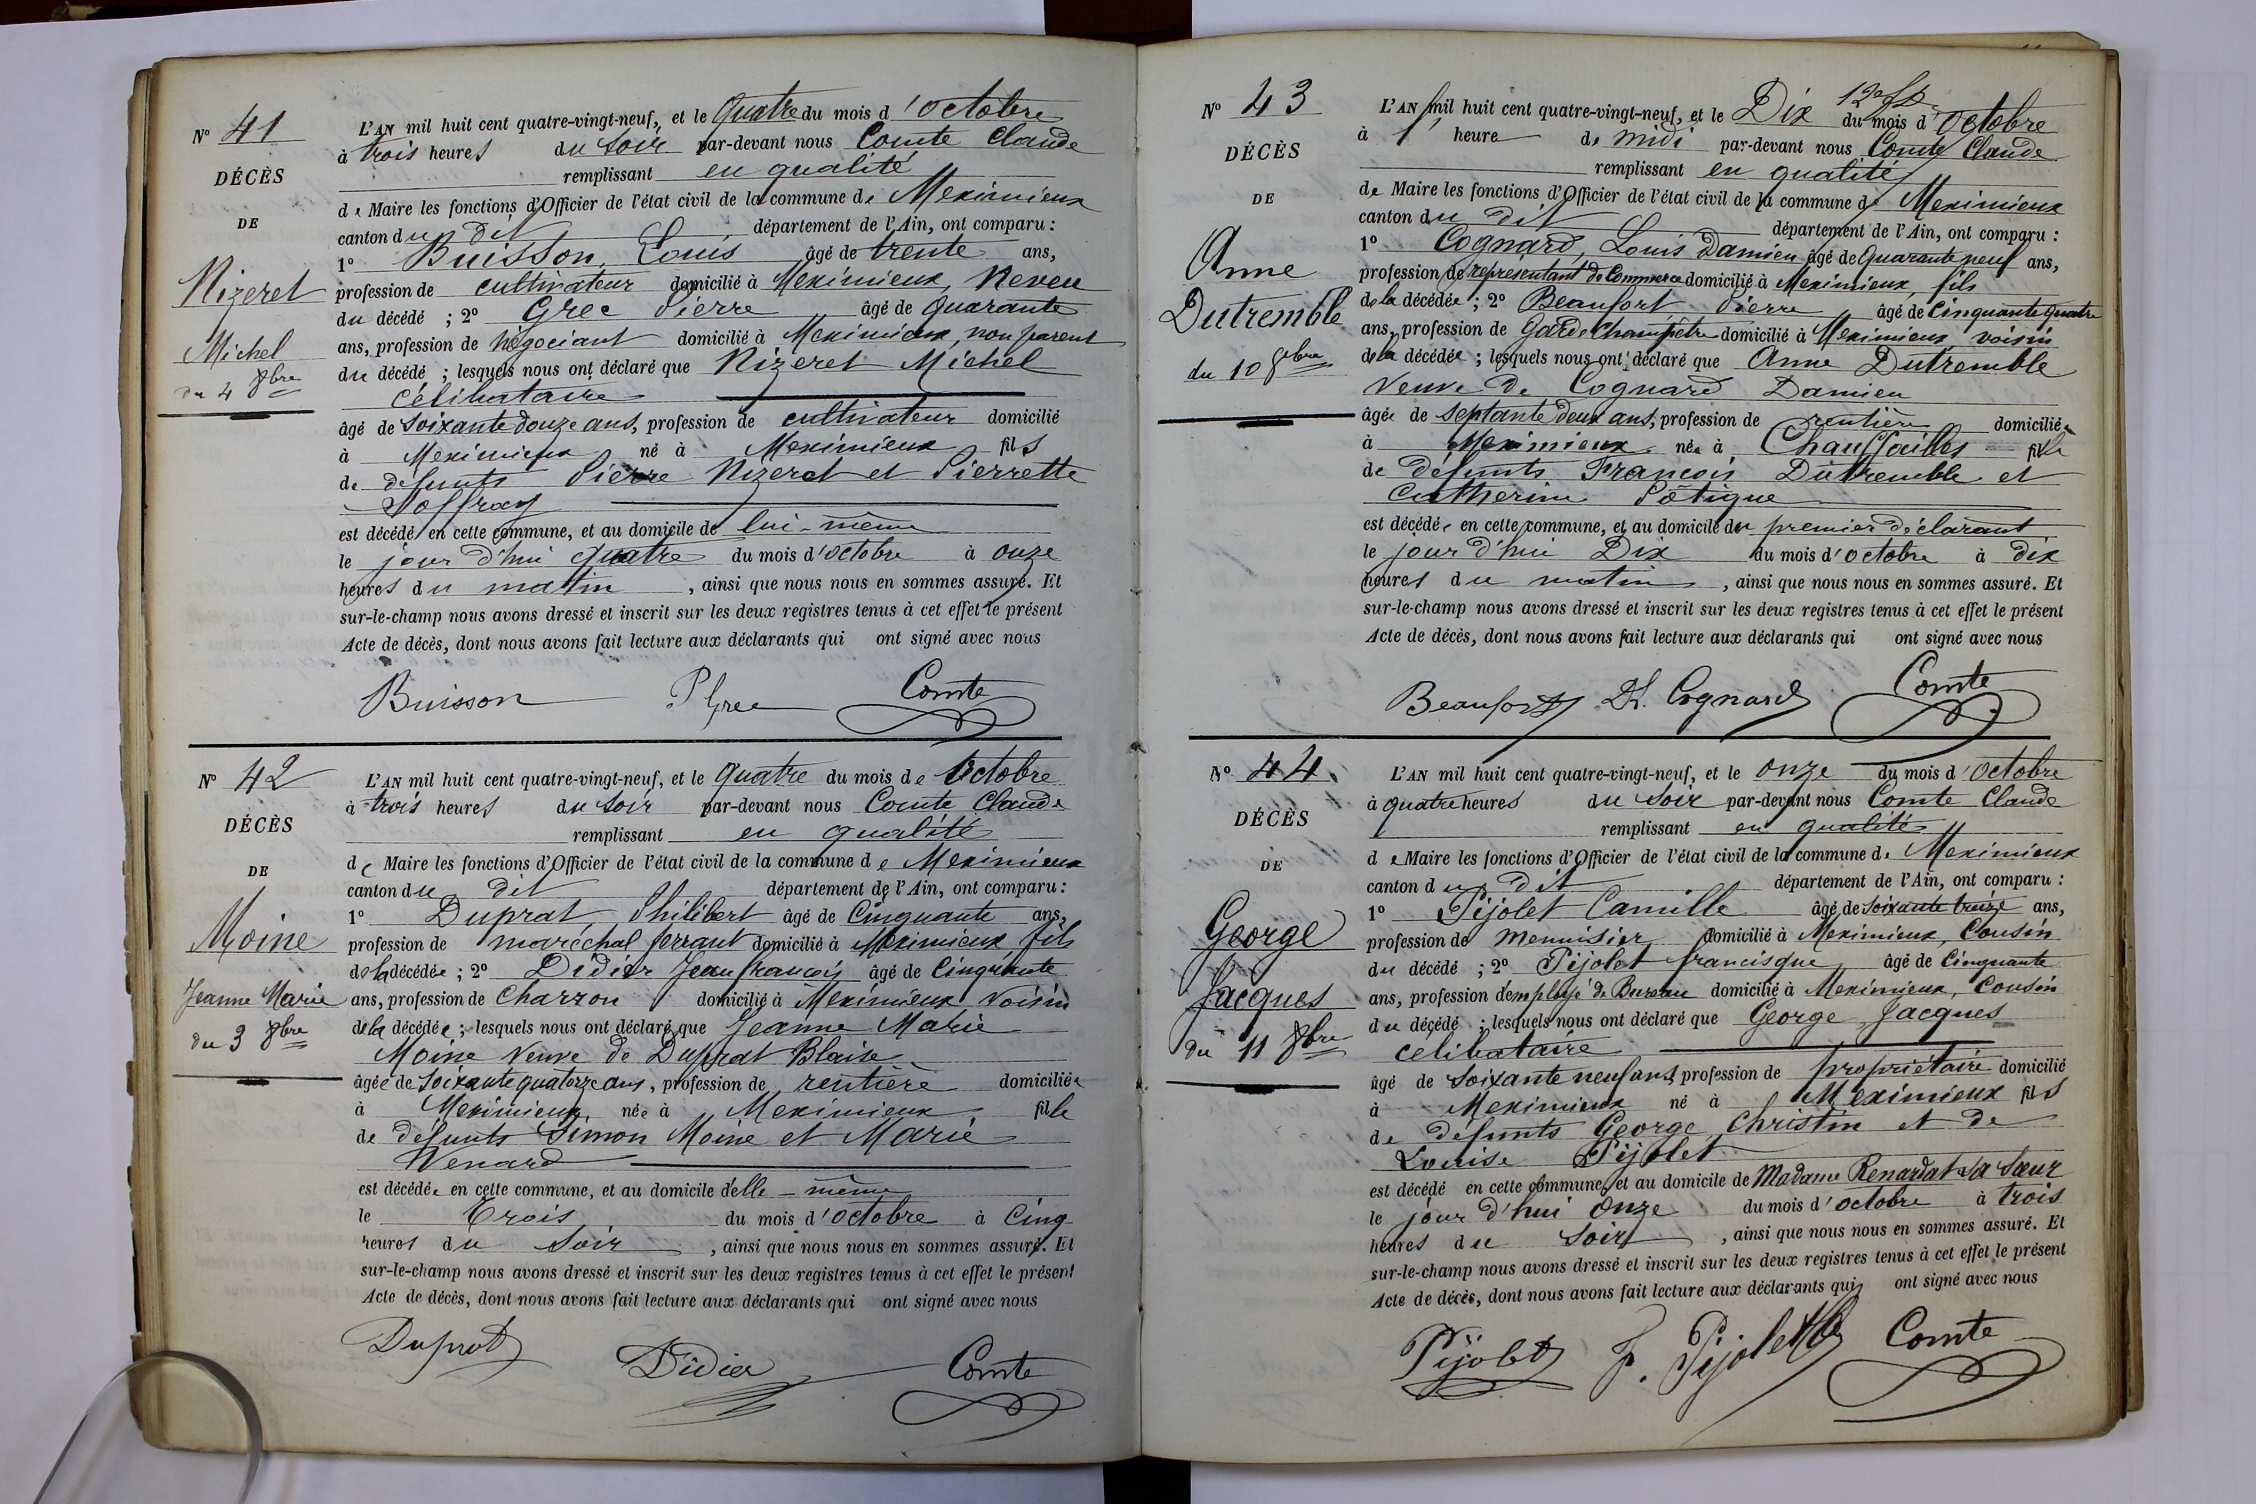 N° 41
DÉCÈS
DE
Nizeret
Michel
du 4 8bre
L'AN mil huit cent quatre-vingt-neuf, et le quatre du mois d'octobre
à trois heures du soir par-devant nous Comte Claude
remplissant en qualité
de Maire les fonctions d'Officier de l'état civil de la commune de Meximieux
canton du dit département de l'Ain, ont comparu :
1° Buisson, Louis âgé de trente ans,
profession de cultivateur domicilié à Meximieux, Neveu
du décédé ; 2° Grec Pierre âgé de quarante
ans, profession de négociant domicilié à Meximieux, non parent
du décédé ; lesquels nous ont déclaré que Nizeret Michel
célibataire
âgé de soixante douze ans, profession de cultivateur domicilié
à Meximieux né à Meximieux fils
de défunts Pierre Nizeret et Pierrette
Joffray
est décédé en cette commune, et au domicile de lui-même
le jour d'hui quatre du mois d'octobre à onze
heures du matin, ainsi que nous nous en sommes assuré. Et
sur-le-champ nous avons dressé et inscrit sur les deux registres tenus à cet effet le présent
Acte de décès, dont nous avons fait lecture aux déclarants qui ont signé avec nous
Buisson P Grec Comte
N° 42
DÉCÈS
DE
Moine
Jeanne Marie
du 3 8bre
L'AN mil huit cent quatre-vingt-neuf, et le quatre du mois de octobre
à trois heures du soir par-devant nous Comte Claude
remplissant en qualité
de Maire les fonctions d'Officier de l'état civil de la commune de Meximieux
canton du dit département de l'Ain, ont comparu :
1° Duprat, Philibert âgé de Cinquante ans,
profession de maréchal ferrant domicilié à Meximieux fils
de la décédée ; 2° Didier Jean françois âgé de Cinquante
ans, profession de Charron domicilié à Meximieux Voisin
de la décédée ; lesquels nous ont déclaré que Jeanne Marie
Moine Veuve de Duprat Blaise
âgée de soixante quatorze ans, profession de rentière domiciliée
à Meximieux, née à Meximieux fille
de défunts Simon Moine et Marie
Venard
est décédée en cette commune, et au domicile d'elle-même
le Trois du mois d'octobre à Cinq
heures du soir, ainsi que nous nous en sommes assuré. Et
sur-le-champ nous avons dressé et inscrit sur les deux registres tenus à cet effet le présent
Acte de décès, dont nous avons fait lecture aux déclarants qui ont signé avec nous
Duprat Didier Comte
N° 43
DÉCÈS
DE
Anne
Dutremble
du 10 8bre
L'AN mil huit cent quatre-vingt-neuf, et le Dix du mois d'octobre
à 1 heure de midi par-devant nous Comte Claude
remplissant en qualité
de Maire les fonctions d'Officier de l'état civil de la commune de Meximieux
canton du dit département de l'Ain, ont comparu :
1° Cognard, Louis Damien âgé de quarante neuf ans,
profession de représentant de Commerce domicilié à Meximieux, fils
de la décédée ; 2° Beaufort Pierre âgé de Cinquante quatre
ans, profession de Garde Champêtre domicilié à Meximieux, voisin
de la décédée ; lesquels nous ont déclaré que Anne Dutremble
Veuve de Cognard Damien
âgée de septante deux ans, profession de rentière domiciliée
à Meximieux née à Chauffailles fille
de défunts François Dutremble et
Catherine Pôtigue
est décédée en cette commune, et au domicile du premier déclarant
le jour d'hui Dix du mois d'octobre à dix
heures du matin, ainsi que nous nous en sommes assuré. Et
sur-le-champ nous avons dressé et inscrit sur les deux registres tenus à cet effet le présent
Acte de décès, dont nous avons fait lecture aux déclarants qui ont signé avec nous
Beaufort L. Cognard Comte
N° 44
DÉCÈS
DE
George
Jacques
du 11 8bre
L'AN mil huit cent quatre-vingt-neuf, et le onze du mois d'octobre
à quatre heures du soir par-devant nous Comte Claude
remplissant en qualité
de Maire les fonctions d'Officier de l'état civil de la commune de Meximieux
canton du dit département de l'Ain, ont comparu :
1° Pijolet Camille âgé de soixante treize ans,
profession de menuisier domicilié à Meximieux, Cousin
du décédé ; 2° Pijolet francisque âgé de Cinquante
ans, profession d'employé de Bureau domicilié à Meximieux, Cousin
du décédé ; lesquels nous ont déclaré que George Jacques
célibataire
âgé de soixante neuf ans, profession de propriétaire domicilié
à Meximieux né à Meximieux fils
de défunts George Christin et de
Louise Pijolet
est décédé en cette commune, et au domicile de Madame Renardat sa sœur
le jour d'hui onze du mois d'octobre à trois
heures du soir, ainsi que nous nous en sommes assuré. Et
sur-le-champ nous avons dressé et inscrit sur les deux registres tenus à cet effet le présent
Acte de décès, dont nous avons fait lecture aux déclarants qui ont signé avec nous
Pijolet F. Pijolet Comte